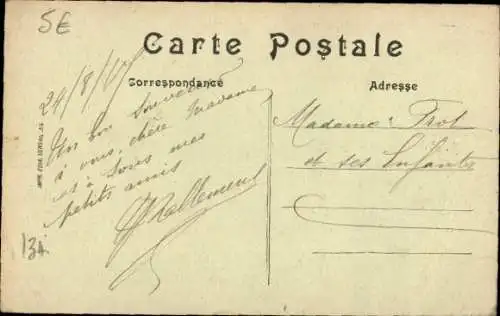 5E
Carte Postale
Correspondance
Adresse
24/8/
Un bon souvenir
à vous, chère Madame
et à tous mes
petits amis
Madame Frot
et ses Enfants
131